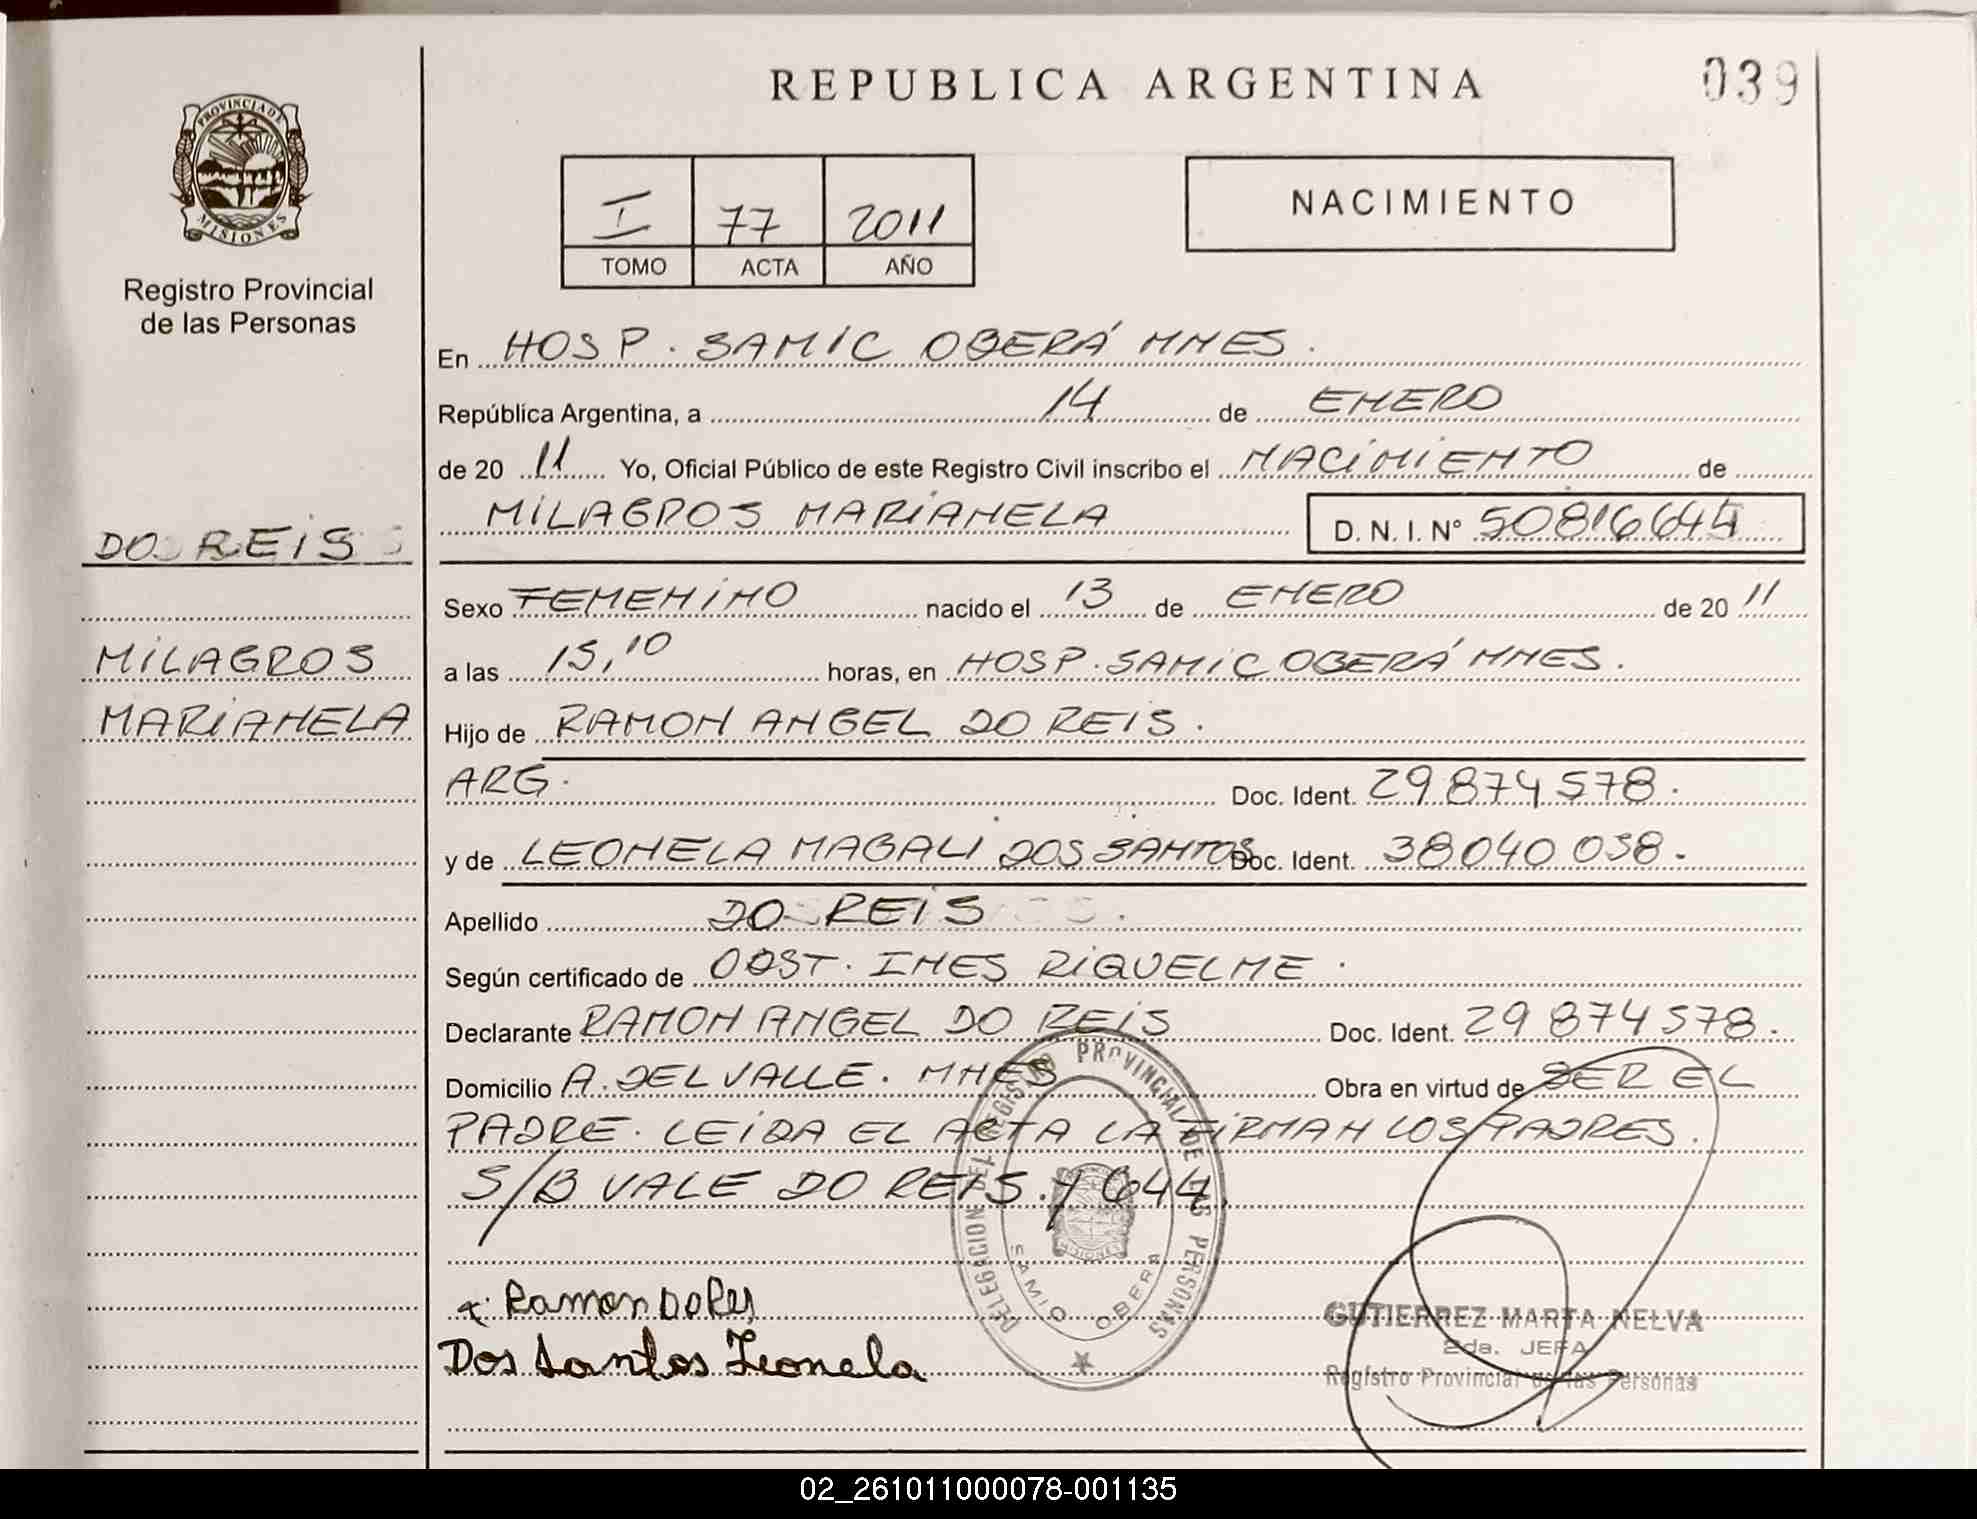 REPUBLICA ARGENTINA
039
PROVINCIA DE
MISIONES
Registro Provincial
de las Personas
I 77 2011
TOMO ACTA AÑO
NACIMIENTO
En HOSP. SAMIC OBERÁ MNES.
República Argentina, a 14 de ENERO
de 20 11 Yo, Oficial Público de este Registro Civil inscribo el NACIMIENTO de
MILAGROS MARIANELA D. N. I. N° 50816644
DO REIS
MILAGROS
MARIANELA
Sexo FEMENINO nacido el 13 de ENERO de 20 11
a las 15,10 horas, en HOSP. SAMIC OBERÁ MNES.
Hijo de RAMON ANGEL DO REIS.
ARG. Doc. Ident. 29.874.578.
y de LEONELA MAGALI DOS SANTOS Doc. Ident. 38040 038.
Apellido DO REIS
Según certificado de OBST. INES RIQUELME.
Declarante RAMON ANGEL DO REIS Doc. Ident. 29 874 578.
Domicilio A. DEL VALLE. MNES Obra en virtud de SER EL
PADRE. LEIDA EL ACTA LA FIRMAN LOS PADRES.
S/B VALE DO REIS. Y 644.
Ramon Do Reis
Dos Santos Leonela
DELEGACION DEL REGISTRO PROVINCIAL DE LAS PERSONAS
SAMIC OBERA
GUTIERREZ MARTA NELVA
2da. JEFA
Registro Provincial de las Personas
02_261011000078-001135